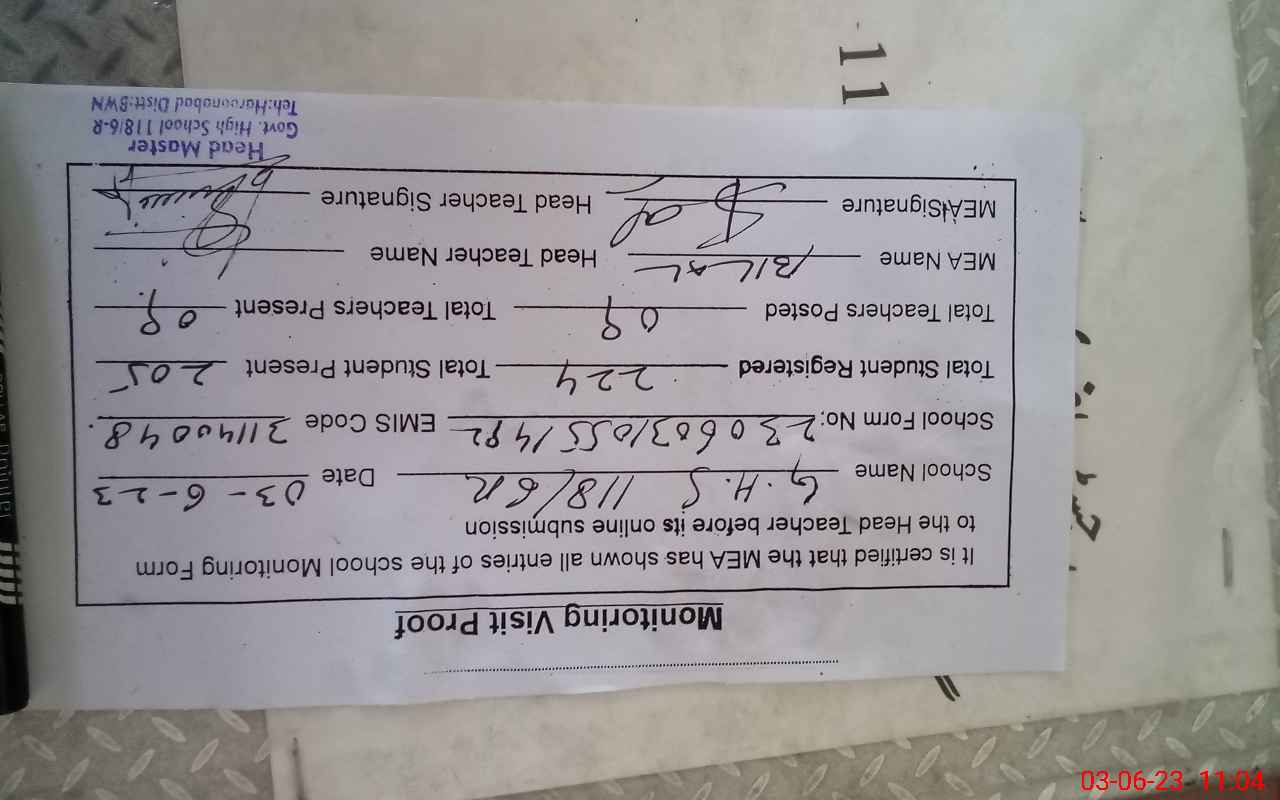 Monitoring Visit Proof
It is certified that the MEA has shown all entries of the school Monitoring Form
to the Head Teacher before its online submission
School Name G.H.S 118/6R Date 03-6-23
School Form No: 230603105514 EMIS Code 31140048
Total Student Registered 224 Total Student Present 205
Total Teachers Posted 09 Total Teachers Present 09
MEA Name Bilal Head Teacher Name
MEA Signature Head Teacher Signature
Head Master
Govt. High School 118/6-R
Teh:Haroonabad Distt:BWN
11
03-06-23 11:04